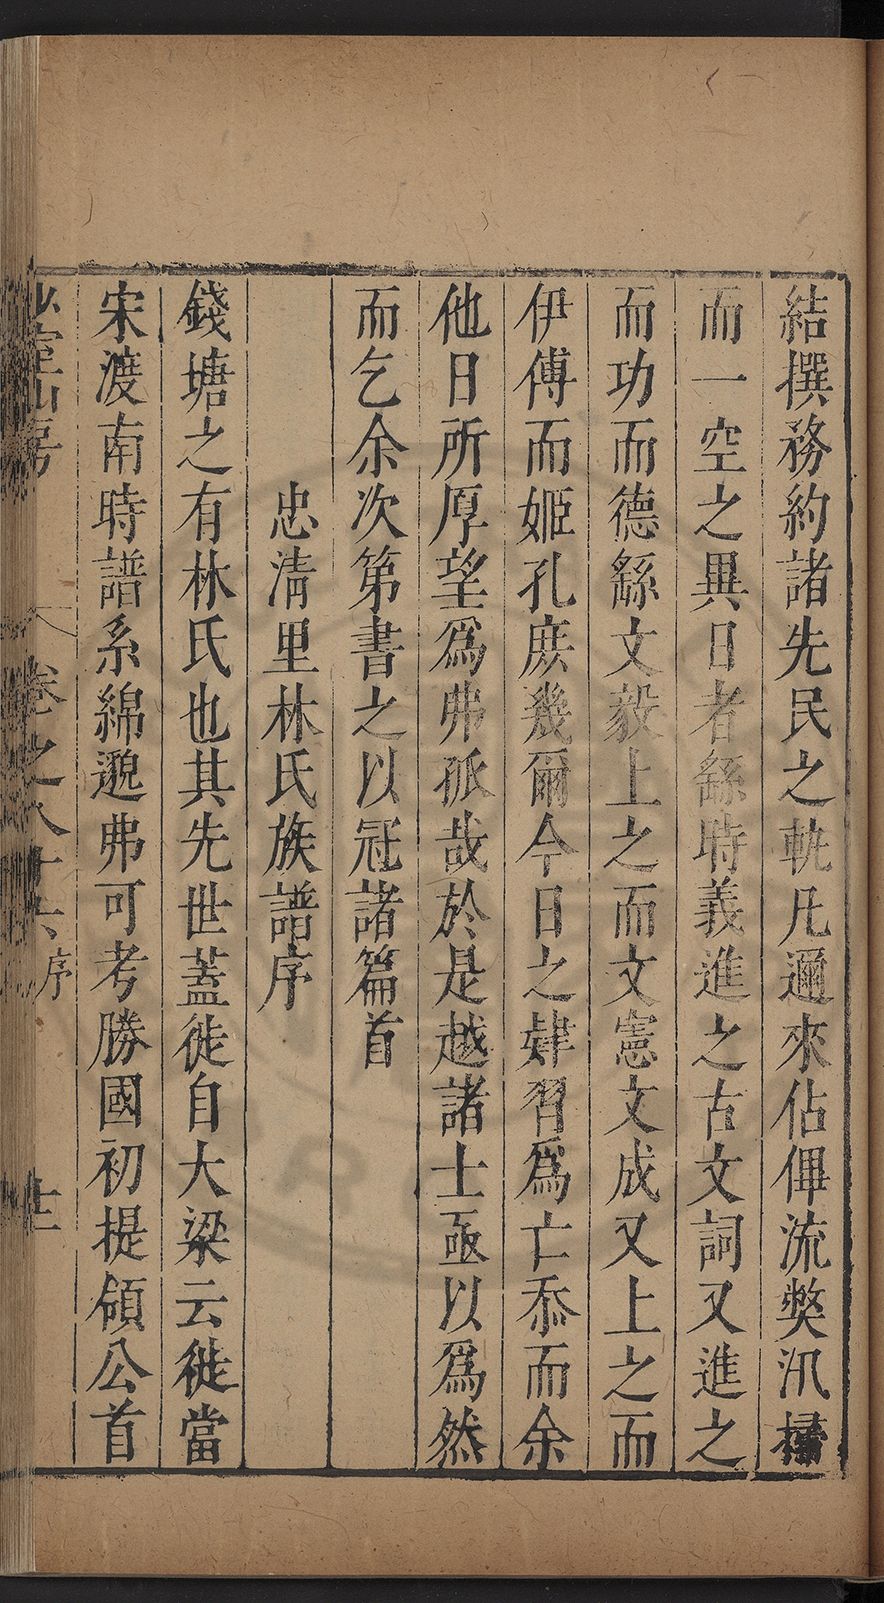 結撰務約諸先民之軌凡邇來佔俾流獘汛掃
而一空之異日者繇時義進之古文詞又進之
而功而德繇文毅上之而文憲文成又上之而
伊傅而姬孔庶幾爾今日之肄習爲亡忝而余
他日所厚望爲弗孤哉於是越諸士亟以爲然
而乞余次第書之以冠諸篇首
忠清里林氏族譜序
錢塘之有林氏也其先世蓋徙自大梁云徙當
宋渡南時譜系綿邈弗可考勝國初提領公首
少室山房 卷之八十六 序